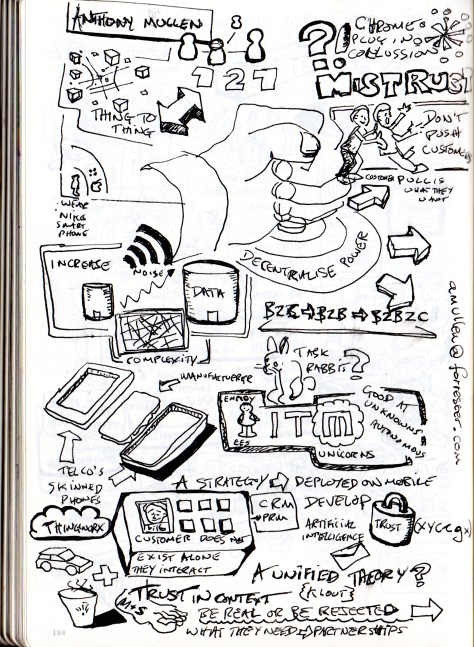 ANTHONY MULLEN
1 2 1
CHROME
PLUG IN
MISTRUST
THING TO
THING
DON'T
PUSH
CUSTOMERS
CUSTOMER PULL IS
WHAT THEY
WANT
WEAR
NIKE
SMART
PHONE
DECENTRALISE POWER
INCREASE
NOISE
DATA
COMPLEXITY
B2C
B2B
B2B2C
amullen@forrester.com
MANUFACTURER
TASK
RABBIT?
EMPLOY
EES
ITM
GOOD AT
UNKNOWNS
AUTONOMOUS
UNICORNS
TELCO'S
SKINNED
PHONES
A STRATEGY
DEPLOYED ON MOBILE
THINGWORX
CUSTOMER DOES NOT
EXIST ALONE
THEY INTERACT
CRM
PRM
DEVELOP
ARTIFICIAL
INTELLIGENCE
TRUST
A UNIFIED THEORY?
TRUST IN CONTEXT
{KLOUT}
M&S
BE REAL OR BE REJECTED
WHAT THEY NEED
PARTNERSHIPS
184